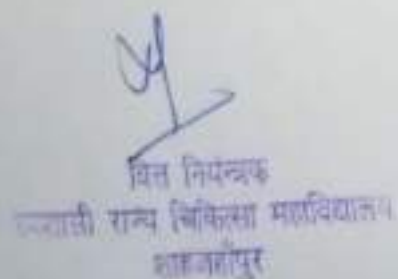 वित्त नियन्त्रक
राज्य चिकित्सा महाविद्यालय
शाहजहाँपुर